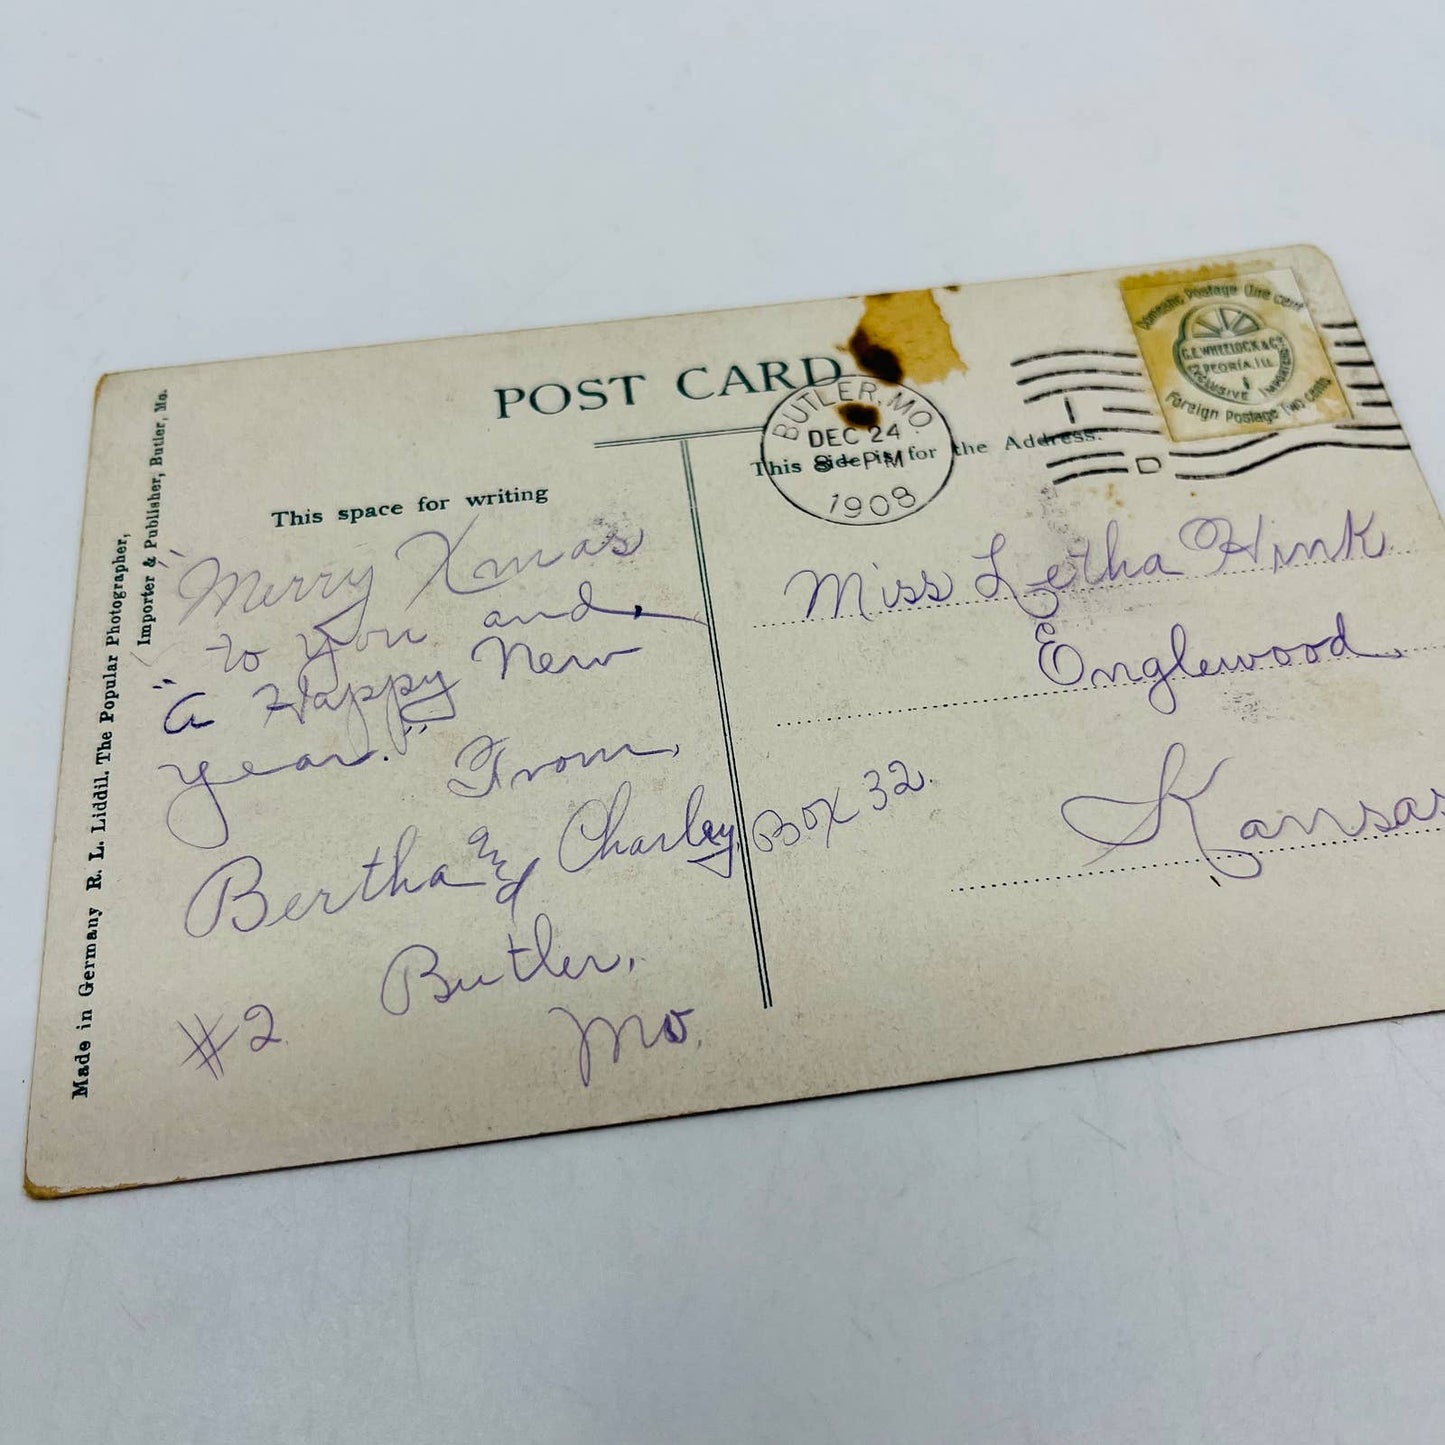 POST CARD
This space for writing
"Merry Xmas
to you and,
"a Happy New
year."
From,
Bertha and Charley, Box 32.
Butler,
Mo.
#2
Made in Germany R. L. Liddil. The Popular Photographer,
Importer & Publisher, Butler, Mo.
BUTLER, MO.
DEC 24
8-PM
1908
This side is for the Address.
D
Domestic Postage One cent
C.E. WHEELOCK & CO.
PEORIA. ILL
EXCLUSIVE IMPORTERS
Foreign Postage Two cents
Miss Letha Hink
Englewood,
Kansas